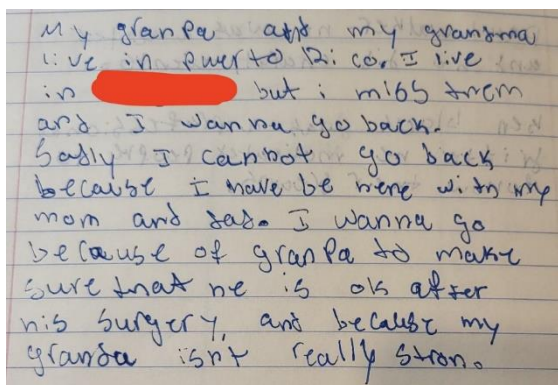 My granpa and my granma
live in puerto Rico. I live
in but i miss them
and I wanna go back.
Sadly I cannot go back
because I have be here with my
mom and dad. I wanna go
because of granpa to make
sure that he is ok after
his surgery, and because my
granda isnt really stron.